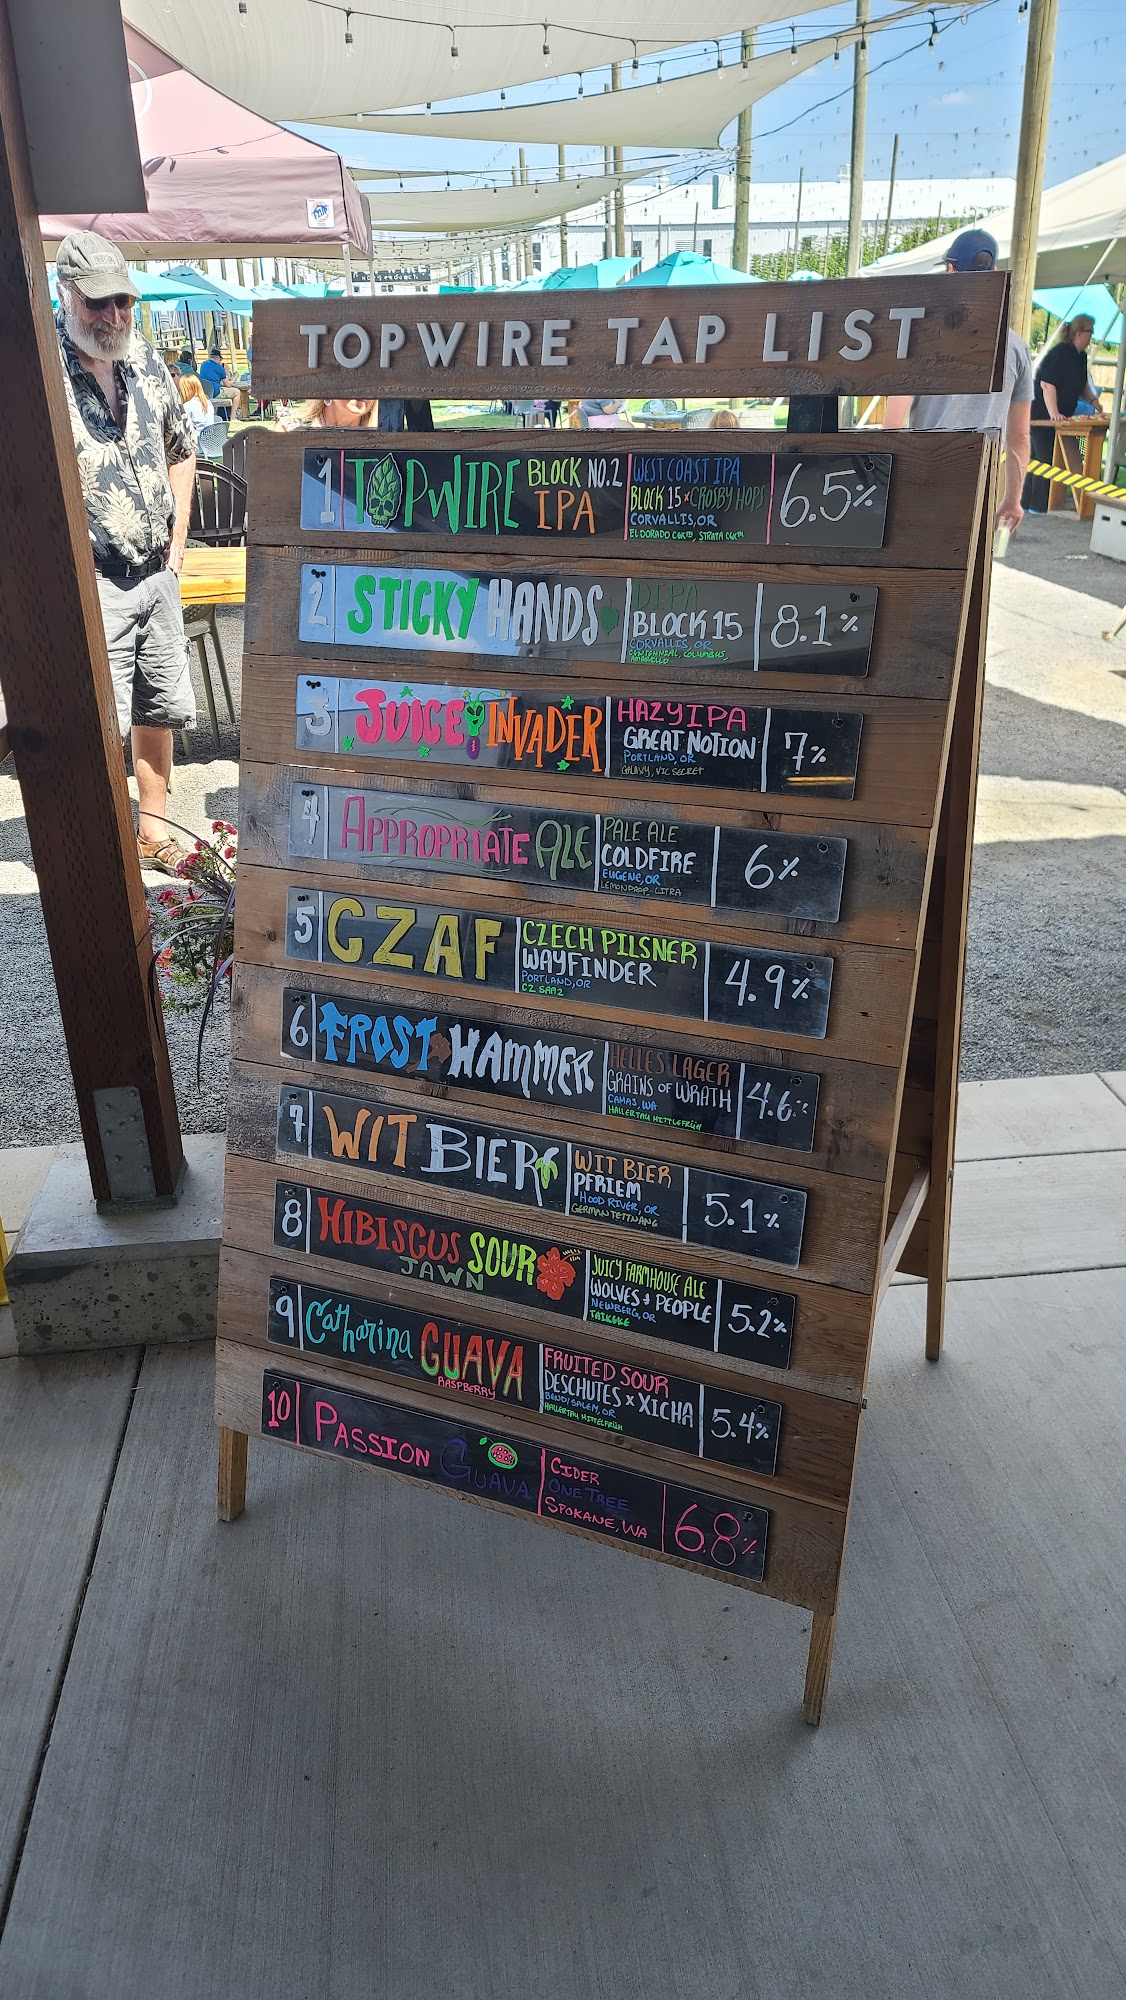 TOPWIRE TAP LIST
1 TOPWIRE BLOCK NO.2 IPA
WEST COAST IPA
BLOCK 15 × CROSBY HOPS
CORVALLIS, OR
EL DORADO CGX™, STRATA CGX™
6.5%
2 STICKY HANDS
DIPA
BLOCK 15
CORVALLIS, OR
CENTENNIAL, COLUMBUS,
AMARILLO
8.1%
3 JUICE INVADER
HAZY IPA
GREAT NOTION
PORTLAND, OR
GALAXY, VIC SECRET
7%
4 APPROPRIATE ALE
PALE ALE
COLDFIRE
EUGENE, OR
LEMONDROP, CITRA
6%
5 CZAF
CZECH PILSNER
WAYFINDER
PORTLAND, OR
CZ SAAZ
4.9%
6 FROST HAMMER
HELLES LAGER
GRAINS OF WRATH
CAMAS, WA
HALLERTAU MITTLEFRÜH
4.6%
7 WIT BIER
WIT BIER
PFRIEM
HOOD RIVER, OR
GERMAN TETTNANG
5.1%
8 HIBISCUS SOUR
JAWN
JUICY FARMHOUSE ALE
WOLVES + PEOPLE
NEWBERG, OR
TAIHEKE
5.2%
9 Catharina GUAVA
RASPBERRY
FRUITED SOUR
DESCHUTES × XICHA
BEND/SALEM, OR
HALLERTAU MITTELFRÜH
5.4%
10 PASSION GUAVA
CIDER
ONE TREE
SPOKANE, WA
6.8%